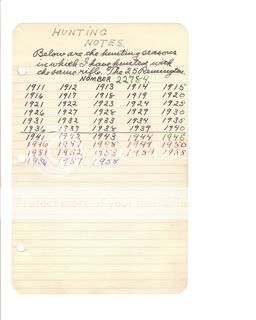 HUNTING
NOTES.
Below are the hunting seasons
in which I have hunted with
the same rifle. The 25 Remington.
NUMBER 22784.
1911 1912 1913 1914 1915
1916 1917 1918 1919 1920
1921 1922 1923 1924 1925
1926 1927 1928 1929 1930
1931 1932 1933 1934 1935
1936 1937 1938 1939 1940
1941 1942 1943 1944 1945
1946 1947 1948 1949 1950
1951 1952 1953 1954 1955
1956 1957 1958
Protect more of your memories